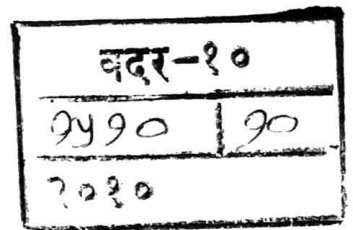 वदर-१०
१५१० | १०
२०१०